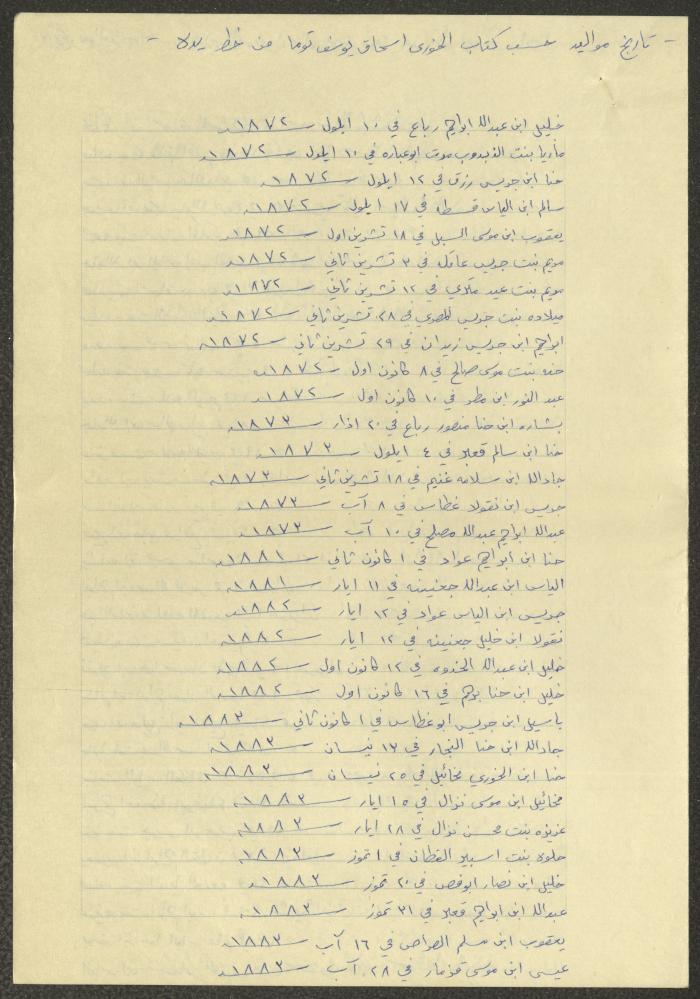 - تاريخ مواليد حسب كتاب الخوري اسحاق يوسف توما من خط يده -
خليل ابن عبدالله ابراهيم رباع في ١٠ ايلول سنة ١٨٧٢م
ماريا بنت ابوعباره في ١٠ ايلول سنة ١٨٧٢م
حنا ابن جريس رزق في ١٢ ايلول سنة ١٨٧٢م
سالم ابن الياس قسطه في ١٧ ايلول سنة ١٨٧٢م
يعقوب ابن موسى السبل في ١٨ تشرين اول سنة ١٨٧٢م
مريم بنت جريس عاقل في ٣ تشرين ثاني سنة ١٨٧٢م
مريم بنت عيد في ١٢ تشرين ثاني سنة ١٨٧٢م
ميلاده بنت جريس المصري في ٢٨ تشرين ثاني سنة ١٨٧٢م
ابراهيم ابن جريس زيدان في ٢٩ تشرين ثاني سنة ١٨٧٢م
حنه بنت موسى صالح في ٨ كانون اول سنة ١٨٧٢م
عبد النور ابن مطر في ١٠ كانون اول سنة ١٨٧٢م
بشاره ابن حنا منصور رباع في ٢٠ اذار سنة ١٨٧٣م
حنا ابن سالم قعبر في ٤ ايلول سنة ١٨٧٣م
جادالله ابن سلامه غنيم في ١٨ تشرين ثاني سنة ١٨٧٣م
جريس ابن نقولا غطاس في ٨ آب سنة ١٨٧٣م
عبدالله ابراهيم عبدالله مصلح في ١٠ آب سنة ١٨٧٣م
حنا ابن ابراهيم عواد في ١ كانون ثاني سنة ١٨٨١م
الياس ابن عبدالله جعنينه في ١١ ايار سنة ١٨٨١م
جريس ابن الياس عواد في ١٢ ايار سنة ١٨٨٢م
نقولا ابن خليل جعنينه في ١٢ ايار سنة ١٨٨٢م
خليل ابن عبدالله في ١٢ كانون اول سنة ١٨٨٢م
خليل ابن حنا برهم في ١٦ كانون اول سنة ١٨٨٢م
باسيل ابن جريس ابوغطاس في ١ كانون ثاني سنة ١٨٨٣م
جادالله ابن حنا النجار في ١٣ نيسان سنة ١٨٨٣م
حنا ابن الخوري مخائيل في ٢٥ نيسان سنة ١٨٨٣م
مخائيل ابن موسى نزال في ١٥ ايار سنة ١٨٨٣م
عزيزه بنت محسن نزال في ٢٨ ايار سنة ١٨٨٣م
حلوه بنت اسبير القطان في ١ تموز سنة ١٨٨٣م
خليل ابن نصار ابوفحص في ٢٠ تموز سنة ١٨٨٣م
عبدالله ابن ابراهيم قعبر في ٣١ تموز سنة ١٨٨٣م
يعقوب ابن مسلم الصراص في ١٦ آب سنة ١٨٨٣م
عيسى ابن موسى قزمار في ٢٨ آب سنة ١٨٨٣م